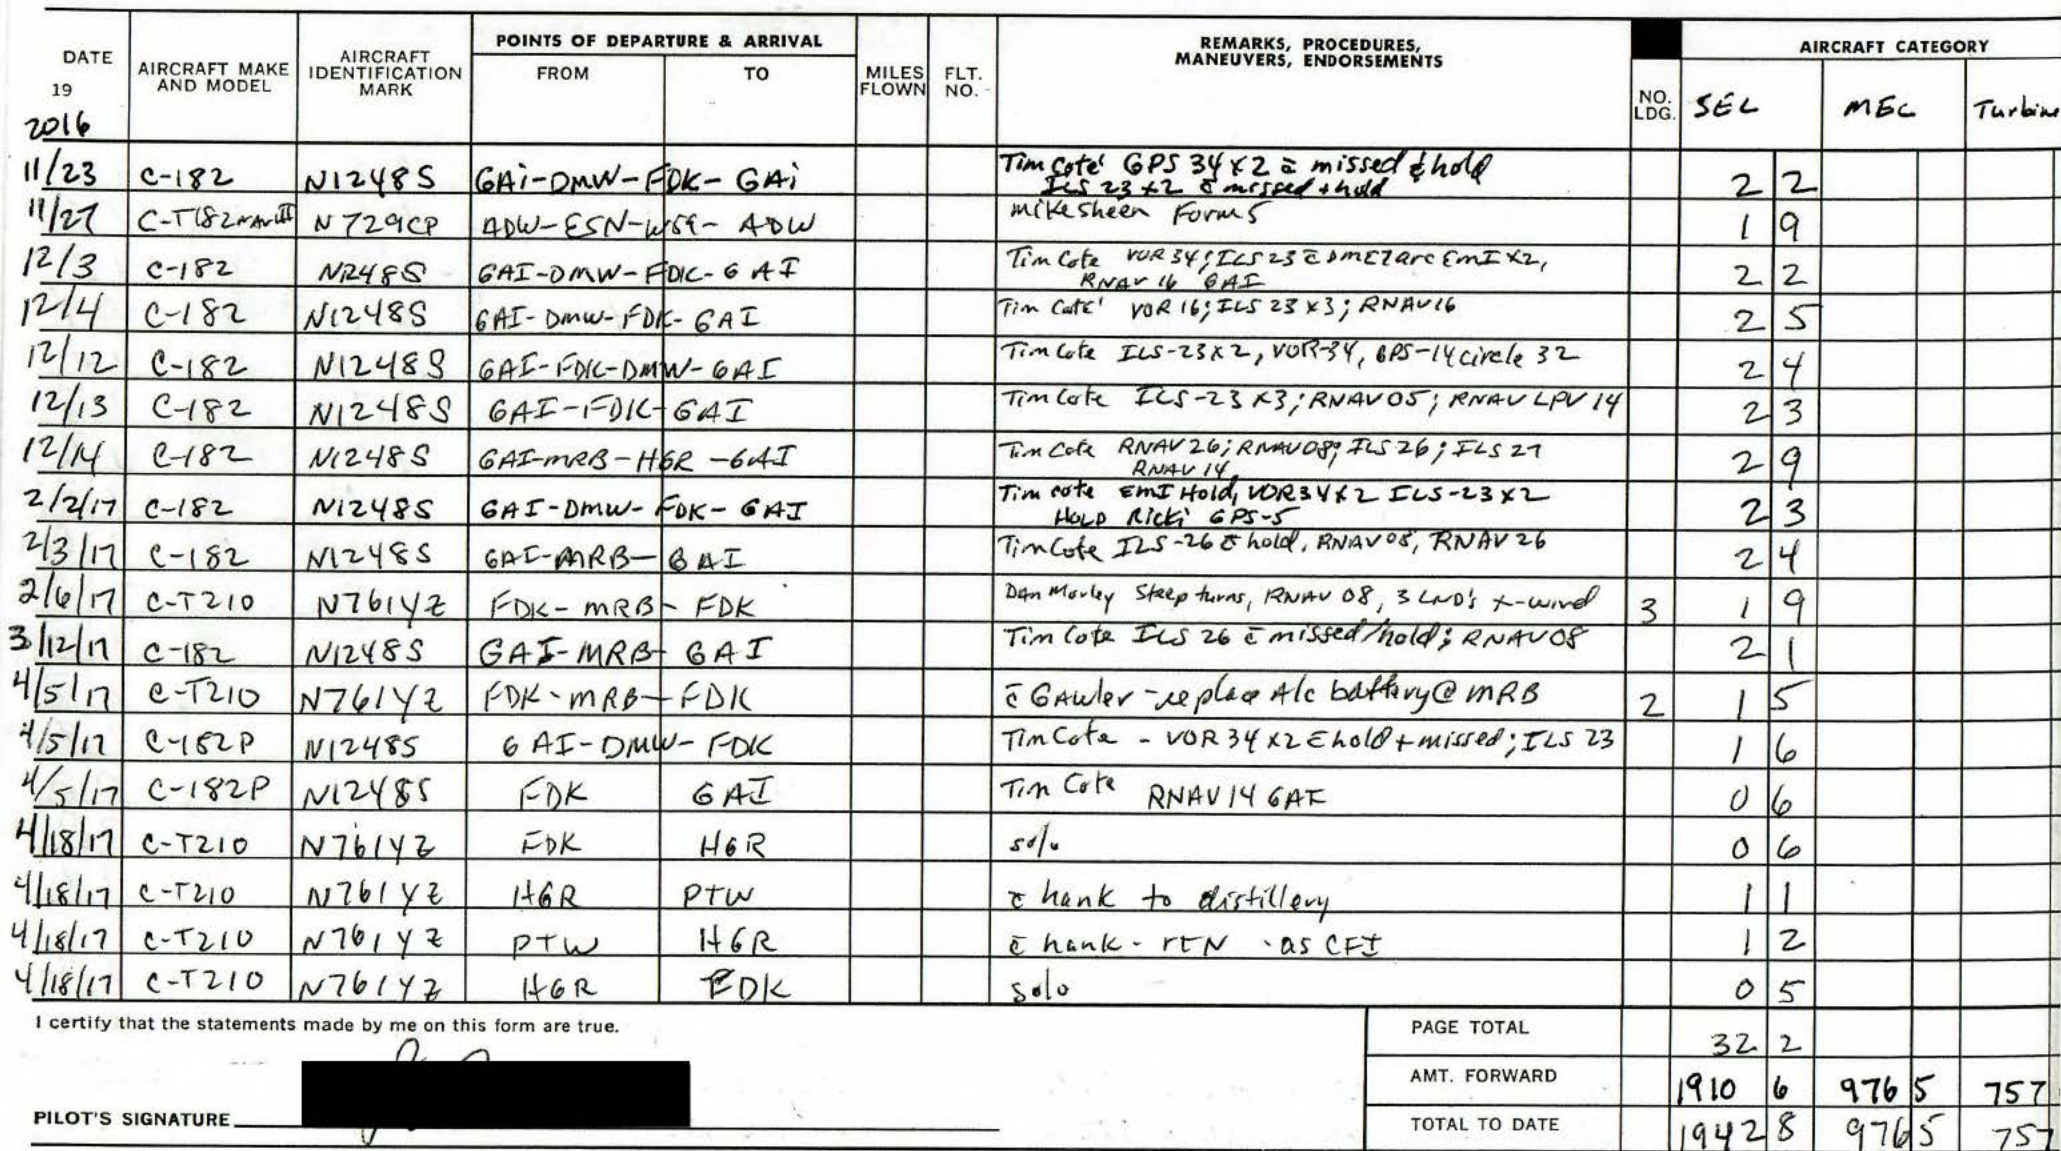 DATE 19 2016 AIRCRAFT MAKE AND MODEL AIRCRAFT IDENTIFICATION MARK POINTS OF DEPARTURE & ARRIVAL FROM TO MILES FLOWN FLT. NO. REMARKS, PROCEDURES, MANEUVERS, ENDORSEMENTS NO. LDG. AIRCRAFT CATEGORY SEL MEL Turbine
11/23 C-182 N1248S GAi-DMW-FDK-GAi Tim Cote' GPS 34 x2 c̄ missed & hold 2 2
ILS 23 x2 c̄ missed + hold
11/27 C-T182 N729CP ADW-ESN-W59-ADW Mike Sheen Form 5 1 9
12/3 C-182 N1248S GAI-DMW-FDK-GAI Tim Cote VOR 34; ILS 23 c̄ DME arc EMI x2, 2 2
RNAV 16 GAI
12/4 C-182 N1248S GAI-DMW-FDK-GAI Tim Cote' VOR 16; ILS 23 x3; RNAV 16 2 5
12/12 C-182 N1248S GAI-FDK-DMW-GAI Tim Cote ILS-23 x2, VOR-34, GPS-14 circle 32 2 4
12/13 C-182 N1248S GAI-FDK-GAI Tim Cote ILS-23 x3; RNAV 05; RNAV LPV 14 2 3
12/14 C-182 N1248S GAI-MRB-HGR-GAI Tim Cote RNAV 26; RNAV 08; ILS 26; ILS 27 2 9
RNAV 14
2/2/17 C-182 N1248S GAI-DMW-FDK-GAI Tim Cote EMI Hold, VOR 34 x2 ILS-23 x2 2 3
HOLD Ricki GPS-5
2/3/17 C-182 N1248S GAI-MRB-GAI Tim Cote ILS-26 c̄ hold, RNAV 08, RNAV 26 2 4
2/6/17 C-T210 N761YZ FDK-MRB-FDK Dan Morley Steep turns, RNAV 08, 3 LND's x-wind 3 1 9
3/12/17 C-182 N1248S GAI-MRB-GAI Tim Cote ILS 26 c̄ missed/hold; RNAV 08 2 1
4/5/17 C-T210 N761YZ FDK-MRB-FDK c̄ Gawler - replace A/c battery @ MRB 2 1 5
4/5/17 C-182P N1248S GAI-DMW-FDK Tim Cote - VOR 34 x2 c̄ hold + missed; ILS 23 1 6
4/5/17 C-182P N1248S FDK GAI Tim Cote RNAV 14 GAI 0 6
4/18/17 C-T210 N761YZ FDK HGR solo 0 6
4/18/17 C-T210 N761YZ HGR PTW c̄ hank to distillery 1 1
4/18/17 C-T210 N761YZ PTW HGR c̄ hank - rtn - as CFI 1 2
4/18/17 C-T210 N761YZ HGR FDK solo 0 5
I certify that the statements made by me on this form are true. PAGE TOTAL 32 2
AMT. FORWARD 1910 6 976 5 757
PILOT'S SIGNATURE TOTAL TO DATE 1942 8 976 5 757